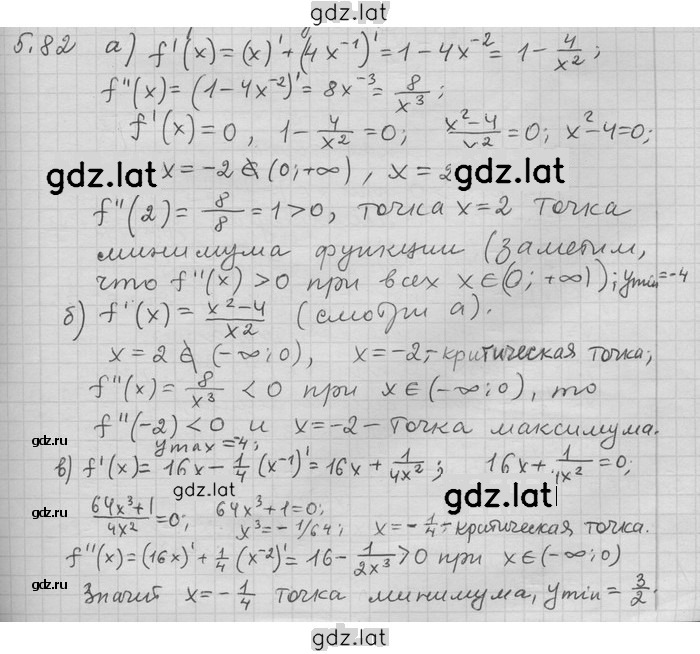 gdz.lat
5.82 а) f'(x) = (x)' + (4x⁻¹)' = 1 - 4x⁻² = 1 - 4/x²;
f''(x) = (1 - 4x⁻²)' = 8x⁻³ = 8/x³;
f'(x) = 0, 1 - 4/x² = 0; (x² - 4)/x² = 0; x² - 4 = 0;
gdz.lat x = -2 ∉ (0; +∞), x = 2 gdz.lat
f''(2) = 8/8 = 1 > 0, точка x = 2 точка
минимума функции (Заметим,
что f''(x) > 0 при всех x ∈ (0; +∞)); ymin = -4
б) f'(x) = (x² - 4)/x² (смотри а).
x = 2 ∉ (-∞; 0), x = -2, - критическая точка;
f''(x) = 8/x³ < 0 при x ∈ (-∞; 0), то
f''(-2) < 0 и x = -2 - точка максимума.
gdz.ru ymax = -4;
gdz.lat
в) f'(x) = 16x - 1/4 (x⁻¹)' = 16x + 1/(4x²); 16x + 1/(4x²) = 0;
gdz.lat gdz.lat
gdz.ru (64x³ + 1)/(4x²) = 0; 64x³ + 1 = 0;
x³ = -1/64; x = -1/4 - критическая точка.
f''(x) = (16x)' + 1/4 (x⁻²)' = 16 - 1/(2x³) > 0 при x ∈ (-∞; 0)
gdz.ru
gdz.lat Значит x = -1/4 точка минимума, ymin = 3/2.
gdz.lat